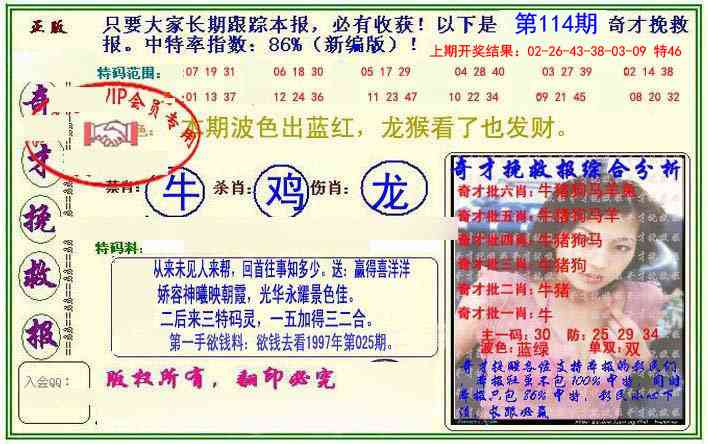 正版
只要大家长期跟踪本报，必有收获！以下是 第114期 奇才挽救
报。中特率指数：86%（新编版）！
上期开奖结果：02-26-43-38-03-09 特46
特码范围：07 19 31 06 18 30 05 17 29 04 28 40 03 27 39 02 14 38
01 13 37 12 24 36 11 23 47 10 22 34 09 21 45 08 20 32
VIP会员专用
本期波色出蓝红，龙猴看了也发财。
禁肖：牛 杀肖：鸡 伤肖：龙
奇才挽救报
特码料：
从来未见人来帮，回首往事知多少。送：赢得喜洋洋
娇容神曦映朝霞，光华永耀景色佳。
二后来三特码灵，一五加得三二合。
第一手欲钱料：欲钱去看1997年第025期。
入会QQ：
版权所有，翻印必究
奇才挽救报综合分析
奇才批六肖：牛猪狗马羊
奇才批五肖：牛猪狗马羊
奇才批四肖：牛猪狗马
奇才批三肖：牛猪狗
奇才批二肖：牛猪
奇才批一肖：牛
主一码：30 防：25 29 34
波色：蓝绿 单双：双
奇才挽救各位支持本报的彩民们
，本报轻虽不包100%中特，同时
本报只包86%中特，彩民小心下
注，长跟必赢